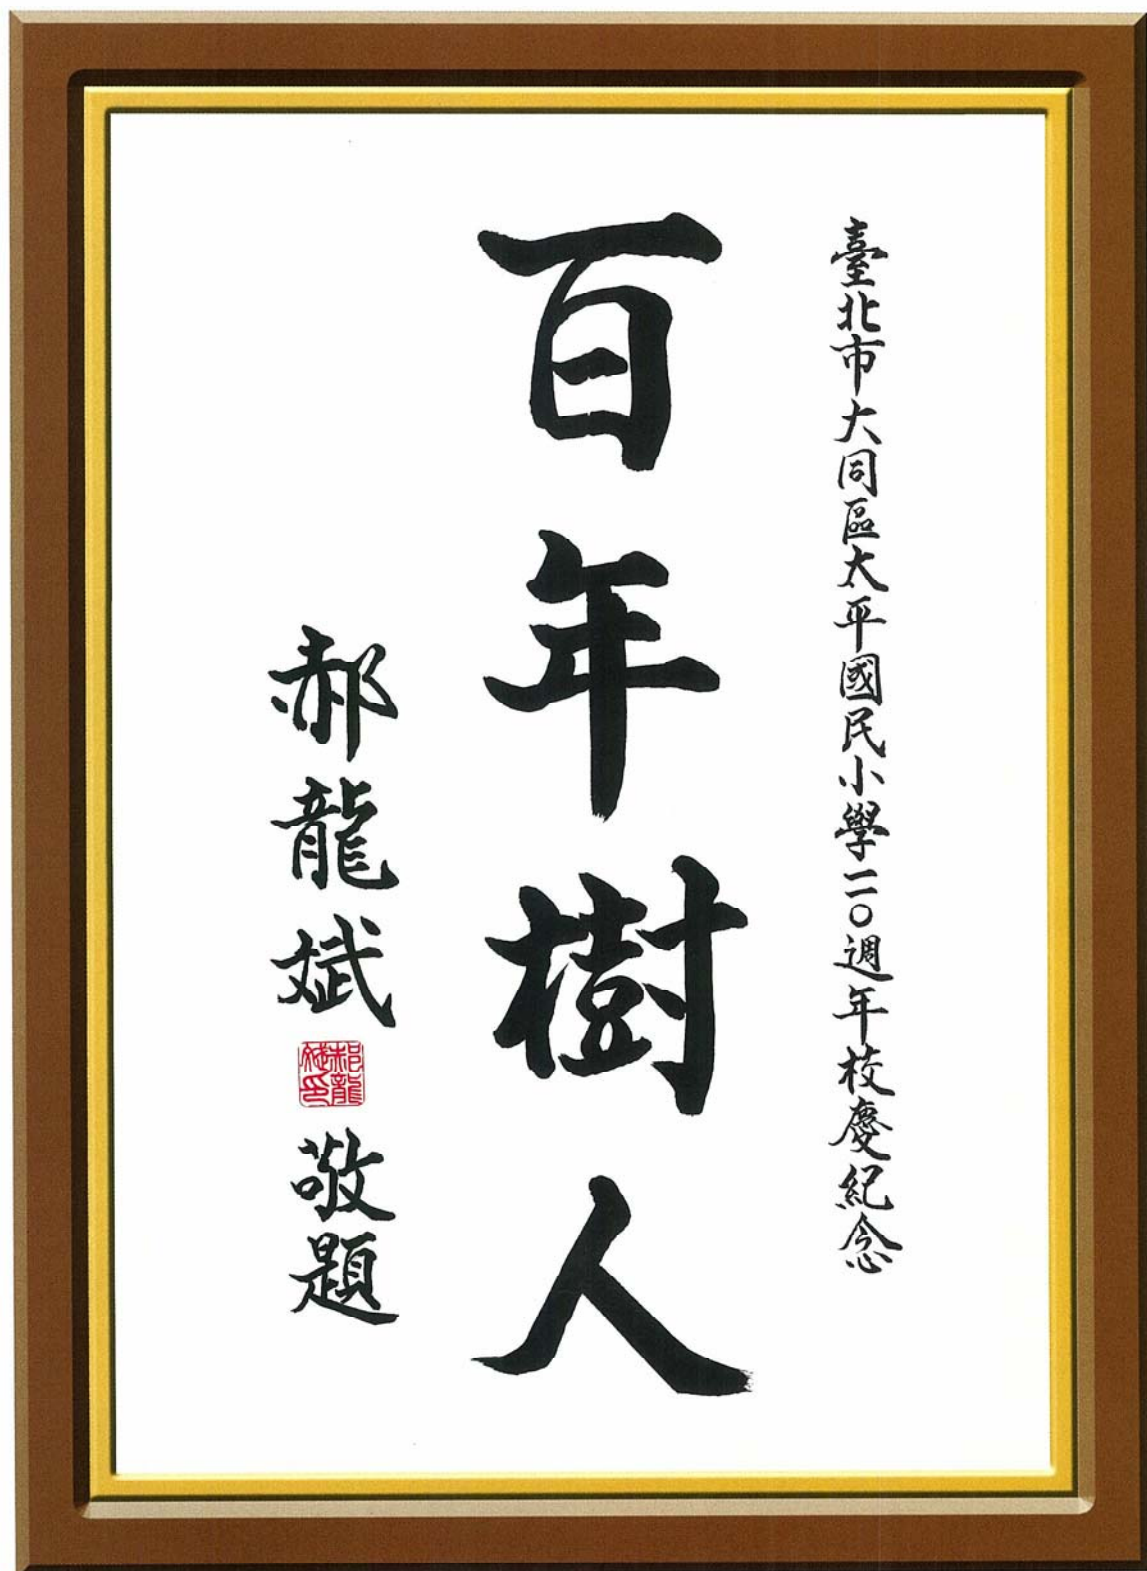 臺北市大同區太平國民小學一一〇週年校慶紀念
百年樹人
郝龍斌
郝龍斌印
敬題